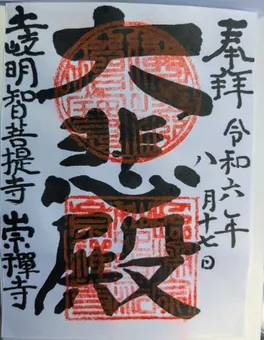 奉拝
令和六年
八月十七日
大悲殿
土岐明智菩提寺 崇禅寺